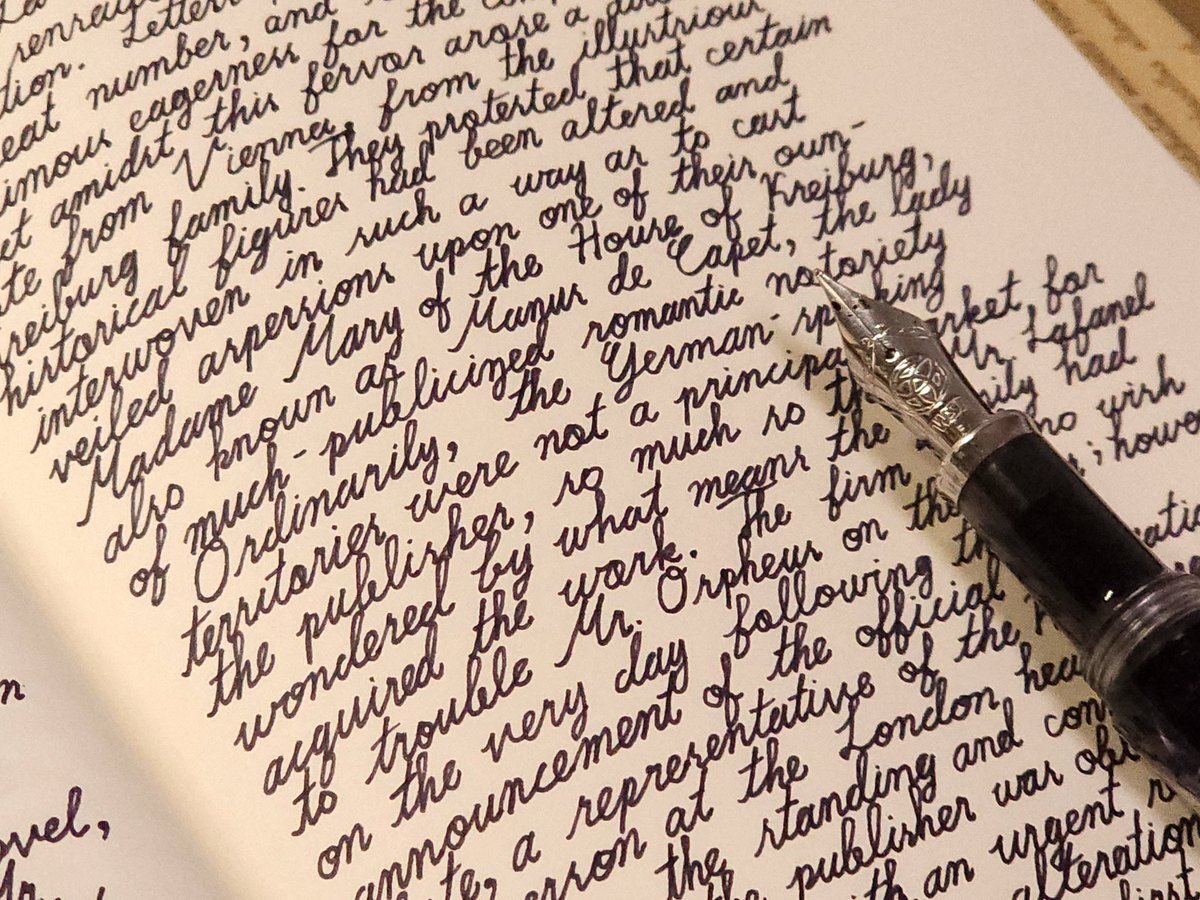 tion. Letters
eat number, and
imous eagerness for the
et amidst this fervor arose a
te from Vienna, from the illustrious
reiburg family. They protested that certain
historical figures had been altered and
interwoven in such a way as to cast
veiled aspersions upon one of their own-
Madame Mary of the House of Kreiburg,
also known as Manus de Capet, the lady
of much-publicized romantic notoriety
Ordinarily, the German-speaking
territories were not a principa market for
the publisher, so much so th Mr. Lafanel
wondered by what means the mily had
acquired the work. The firm no wish
to trouble Mr. Orpheus on the ; howe
on the very day following th
announcement of the official
te, a representative of the
erson at the London hea
the standing and con
the publisher was obli
th an urgent r
alteration
first
ovel,
Mr.